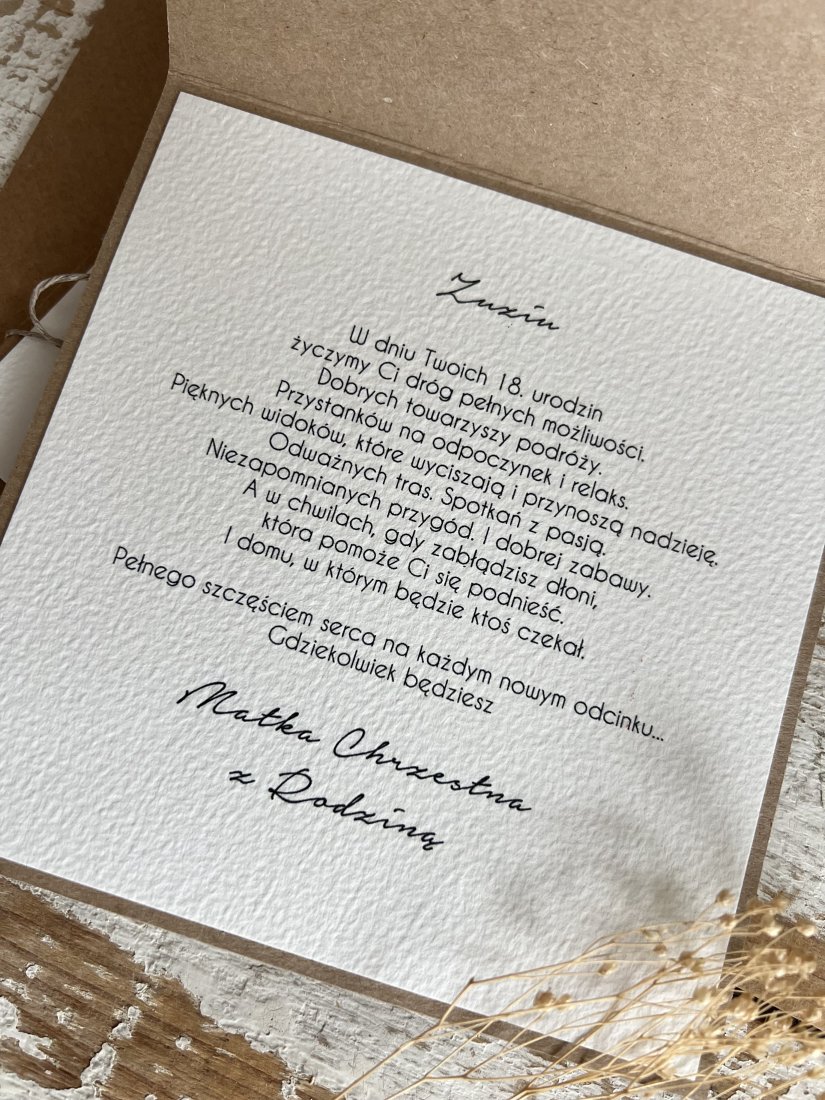 Zuziu
W dniu Twoich 18. urodzin
życzymy Ci dróg pełnych możliwości.
Dobrych towarzyszy podróży.
Przystanków na odpoczynek i relaks.
Pięknych widoków, które wyciszają i przynoszą nadzieję.
Odważnych tras. Spotkań z pasją.
Niezapomnianych przygód. I dobrej zabawy.
A w chwilach, gdy zabłądzisz dłoni,
która pomoże Ci się podnieść.
I domu, w którym będzie ktoś czekał.
Pełnego szczęściem serca na każdym nowym odcinku...
Gdziekolwiek będziesz
Matka Chrzestna
z Rodziną